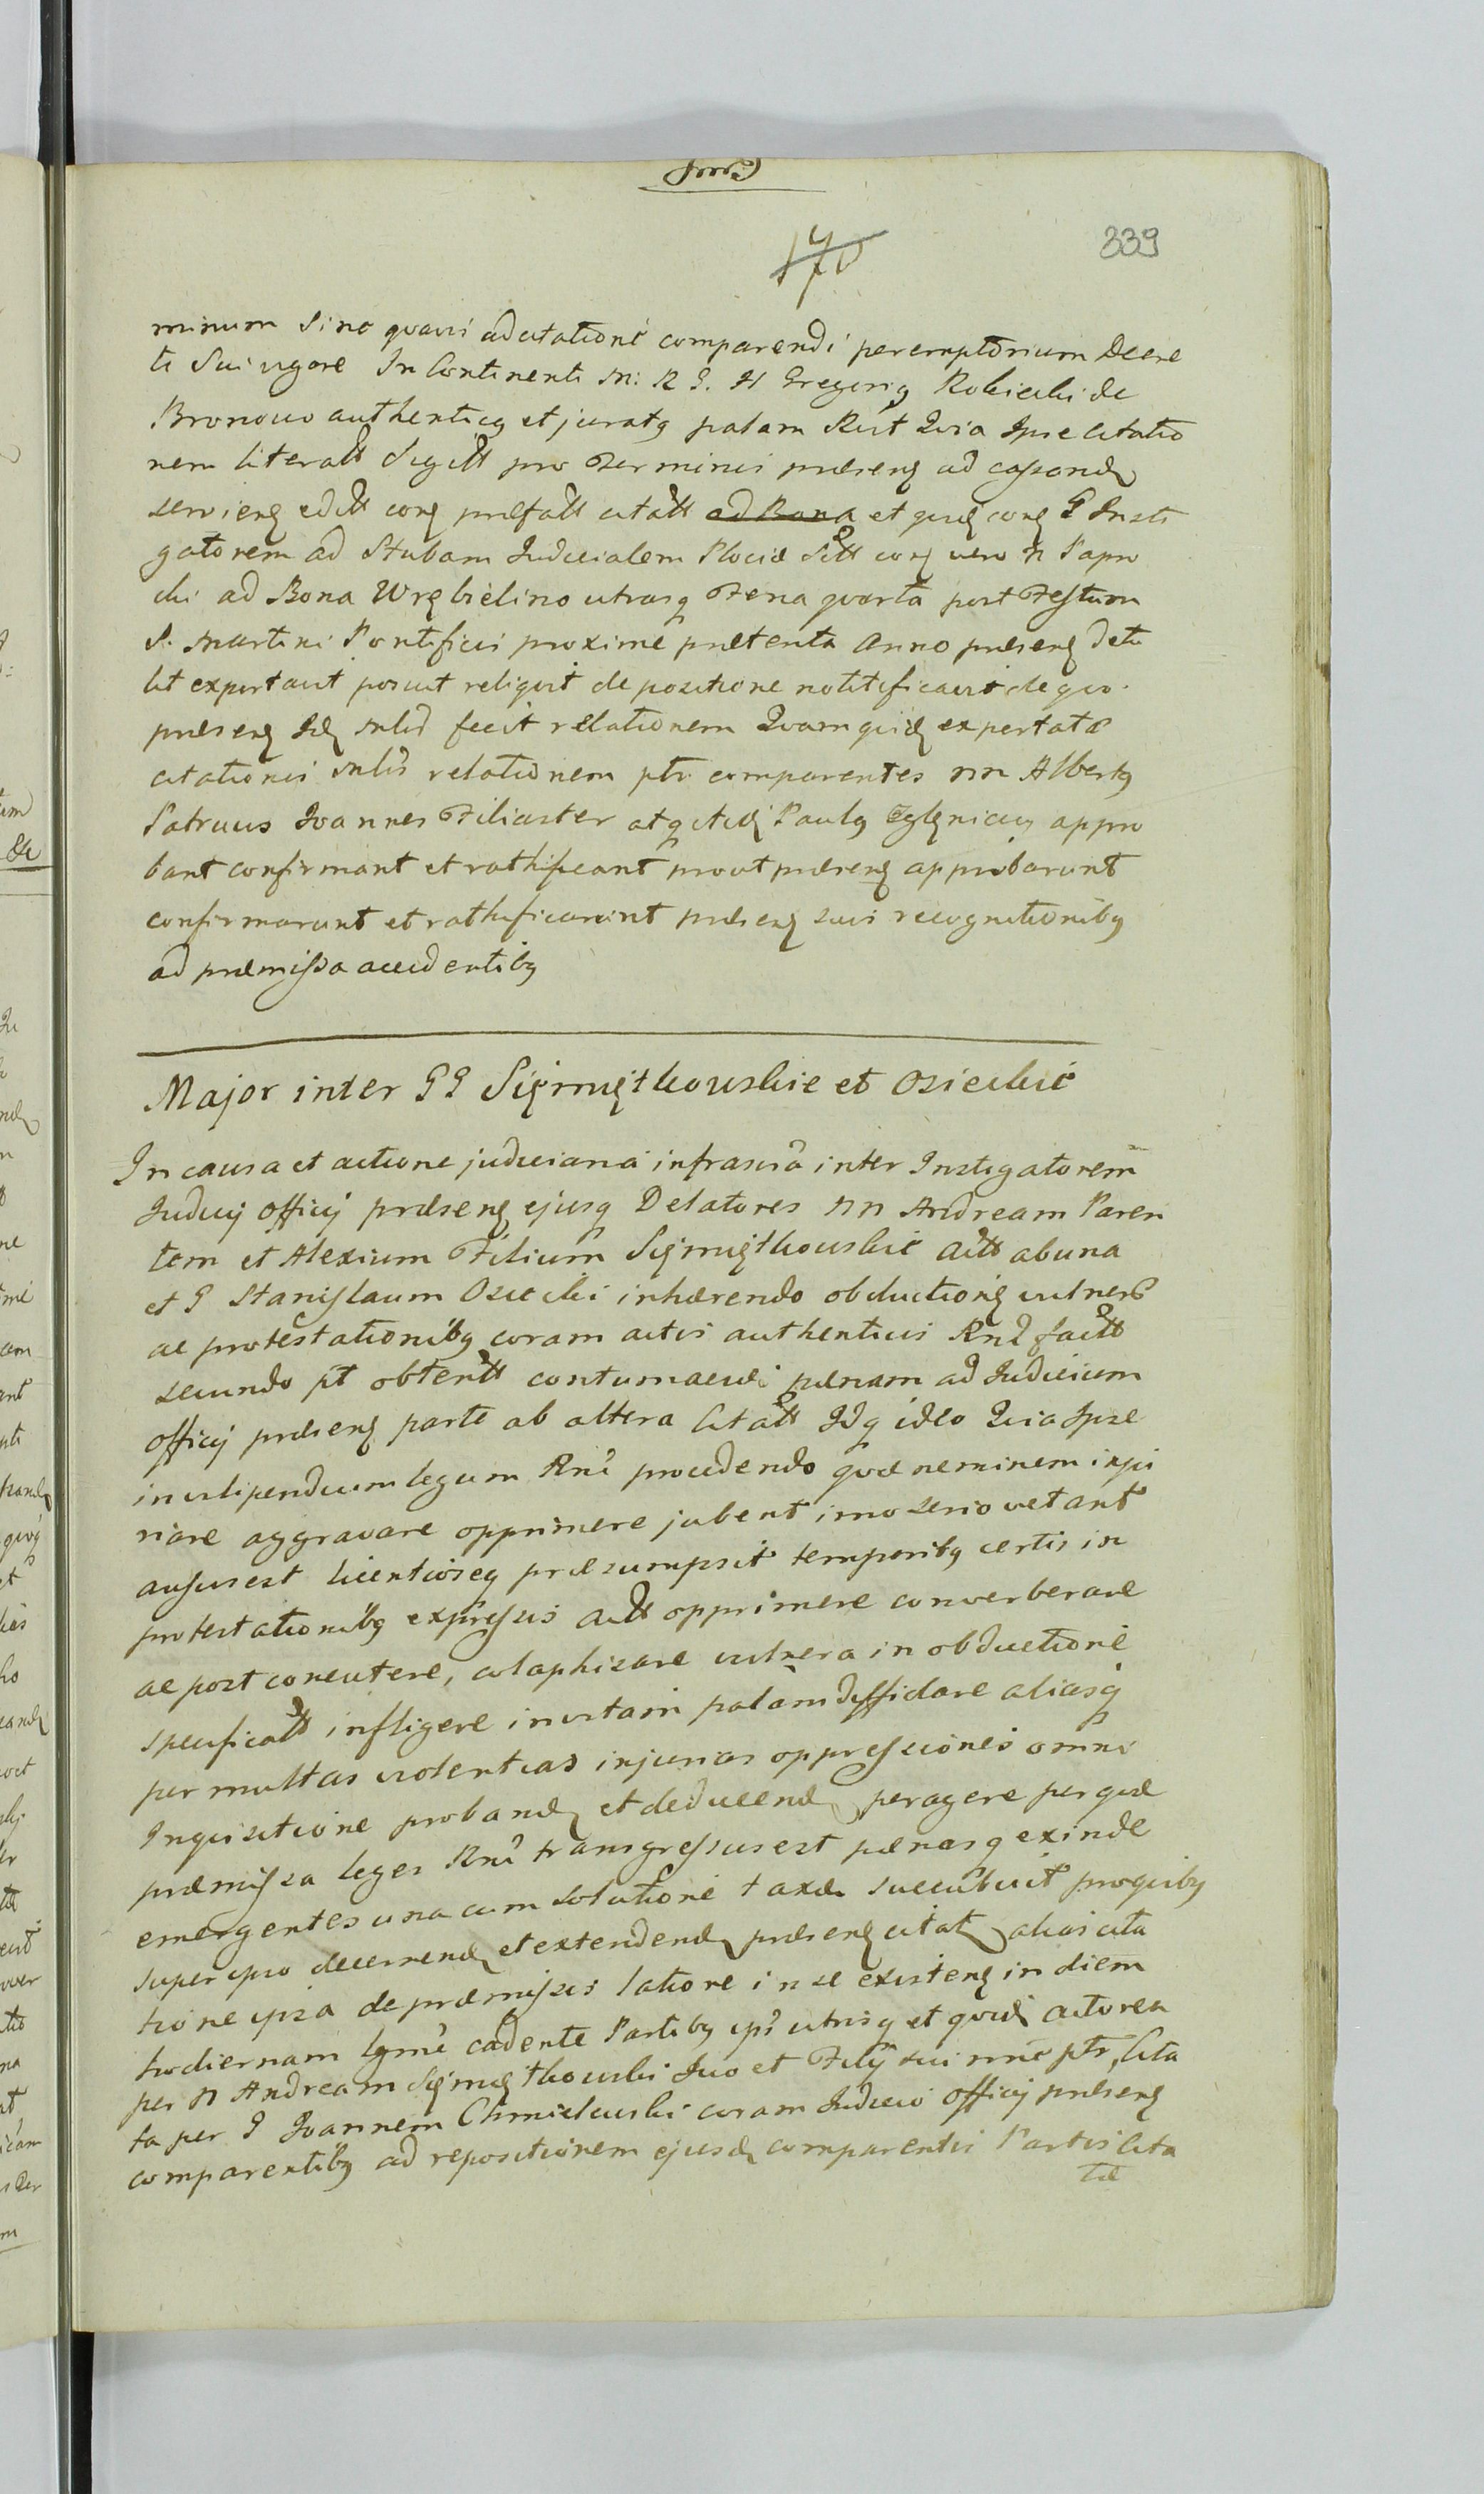 170
339
minum sine quavis adcitatione comparendi peremptorium Decre
ti sui vigore In Continenti M: R G. H Gregorig Robiecki de
Bronowo authenticg et juratg palam Rcit Quia Ipse Citatio
nem literatt Sigitt pro Terminis præsenę ad cassandę
servienę editt conę præfatt citatt ad Bona et quidę conę G Insti
gatorem ad Stubam Judicialem Plociæ Sitt conę vero N Papro
cki ad Bona Wrębielino utrasq Feria quarta post Festum
S. Martini Pontificis proxime præterita Anno præsenę detu
lit exportavit posuit reliqvit de positione notitificavit de quo
præsenę suę fecit relationem Quamquidę exportatæ
citationis relationem ptr comparentes NN Albertg
Patruus Joannes Filiaster atq itidę Paulg appro
bant confirmant et rathificant prout præsenę approbarunt
confirmarunt et rathificarunt præsenę suis recognitionibg
ad præmissa accidentibg
Major inter GG Sięmiętkowskie et Osieckie
In causa et actione judiciaria infrascra inter Instigatorem
Judicij Officij præsenę ejusq Delatores NN Andream Paren
tem et Alexium Filium Sięmiętkowskie actt ab una
et G Stanislaum Osiecki inhærendo obductionę vulnerũ
ac protestationibg coram actis authenticis Rni factt
secundo pt obtentt contumaciæ pænam ad Judicium
Officij præsenę parte ab altera Citatt Idq ideo Quia Ipse
in vilipendium legum Rni procedendo quæ neminem inju
riare aggravare opprimere jubent imo serio vetant
ausus est licentioseq præsumpsit temporibg certis in
protestationibg expressis actt opprimere converberare
ac post concutere, colaphizare vulnera in obductione
specificatt infligere in vitam palam diffidare aliasq
per multas violentias injurias oppressiones omni
Inquisitione probandę et deducendę peragere per quæ
præmissa leges Rni transgressus est pænasq exinde
emergentes una cum solutione taxæ succubuit proquibg
super ipso decernendę et extendendę præsenę citatę alias cita
tione ipsa de præmissis latiore in se existenę in diem
hodiernam lgme cadente Partibg ips utrisq et quidę actorea
per N Andream Sięmiętkowski suo et Filij sui nnie ptr, Cita
ta per G Joannem Chmielewski coram Judicio Officij præsenę
comparentibg ad repositionem ejusdę comparentis Partis Cita
tæ